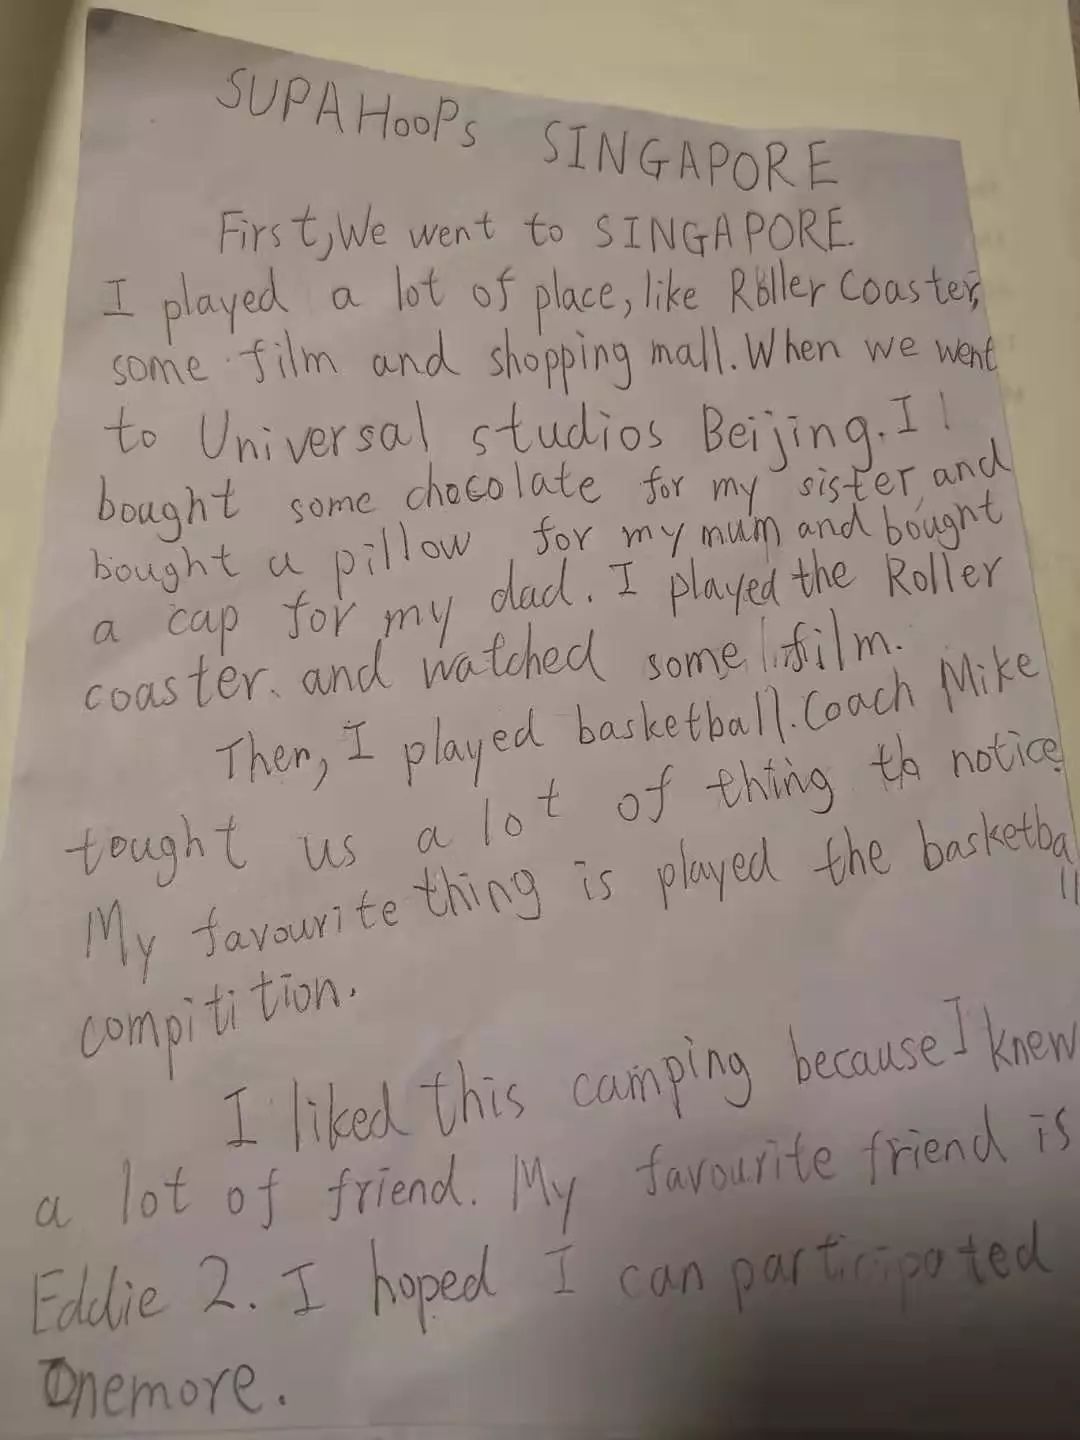 SUPAHooPs SINGAPORE
First, We went to SINGAPORE.
I played a lot of place, like Roller Coaster,
some film and shopping mall. When we went
to Universal studios Beijing. I
bought some chocolate for my sister, and
bought a pillow for my mum and bought
a cap for my dad. I played the Roller
coaster. and watched some film.
Then, I played basketball. Coach Mike
tought us a lot of thing to notice
My favourite thing is played the basketba
ll
compitition.
I liked this camping because I knew
a lot of friend. My favourite friend is
Eddie 2. I hoped I can participated
Onemore.